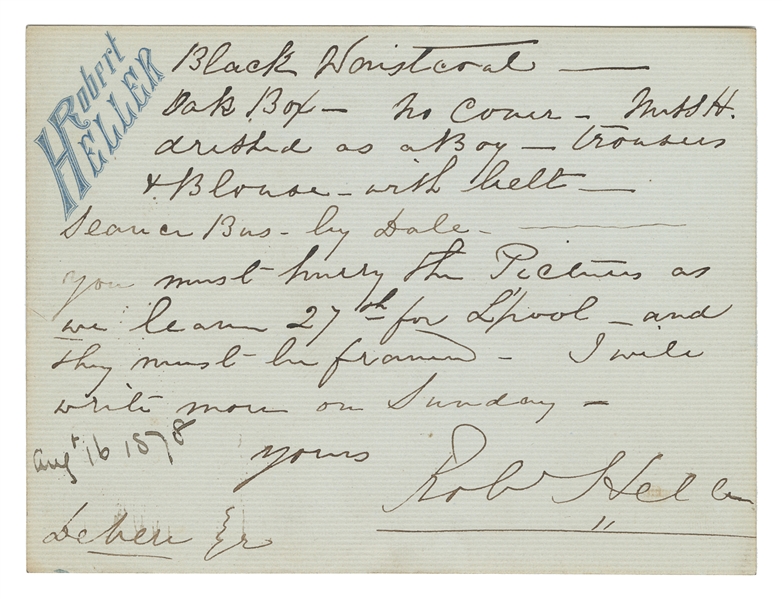 Robert
HELLER
Black Waistcoat —
Oak Box — no Cover — Miss H.
dressed as a Boy — trousers
& Blouse — with belt —
Bus - by Dale - —
you must hurry the Pictures as
we leave 27th for L'pool — and
they must be framed — I will
write more on Sunday —
yours
Augt 16 1878
Robt Heller
DeVere Esqr